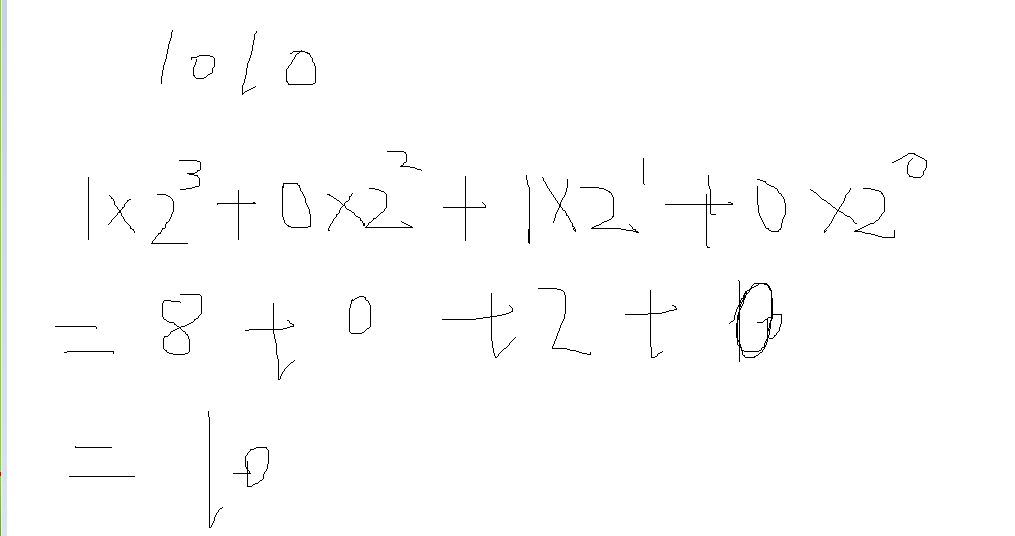 1010
1×2³+0×2²+1×2¹+0×2⁰
=8+0+2+0
=10